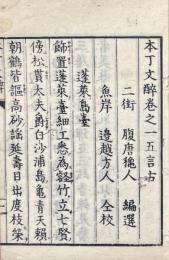 本丁文酔巻之一五言古
二街 腹唐穐人 編選
魚岸 邊越方人 仝校
蓬萊島臺
飾置蓬萊臺細工悉爲寂竹立七賢
傍松貫太夫爵白沙浦島亀青天賴
朝鶴皆謳高砂謡延壽日出度枝榮